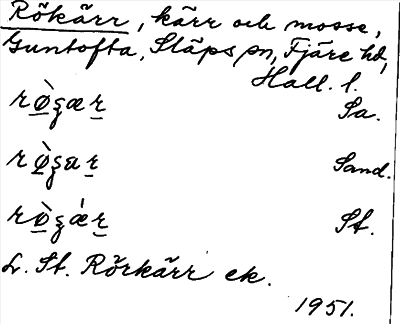 Rökärr, kärr och mosse,
Guntofta, Släps sn, Fjäre hd,
Hall. l.
rø̀ʂær Sa.
rø̀ʂar Sand.
rø̀ʂǽr St.
L. St. Rörkärr ek.
1951.